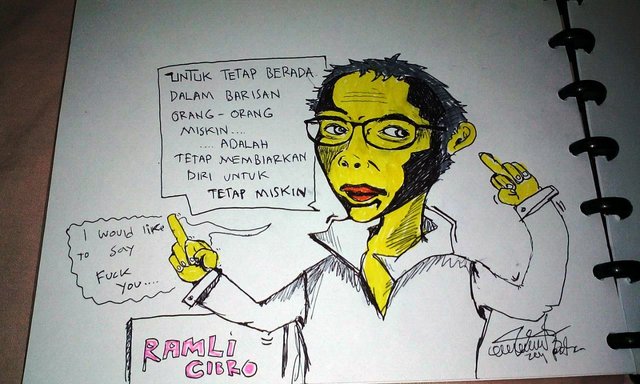 UNTUK TETAP BERADA
DALAM BARISAN
ORANG - ORANG
MISKIN....
.... ADALAH
TETAP MEMBIARKAN
DIRI UNTUK
TETAP MISKIN
I WOULD LIKE
TO SAY
FUCK
YOU....
RAMLI
CIBRO